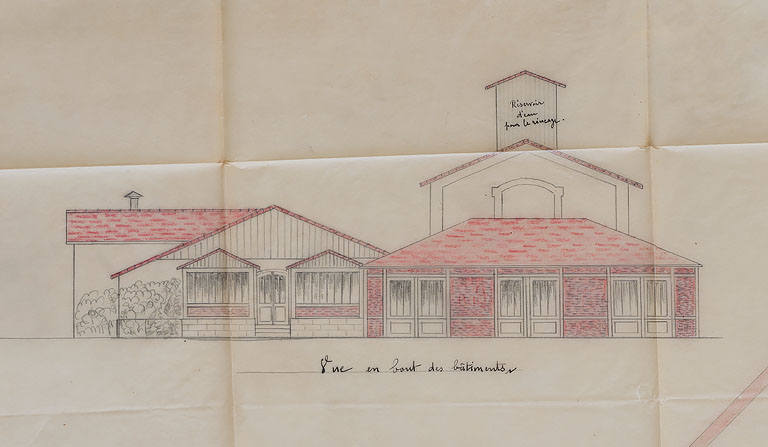 Réservoir
d'eau
pour le rinçage.
Vue en bout des bâtiments